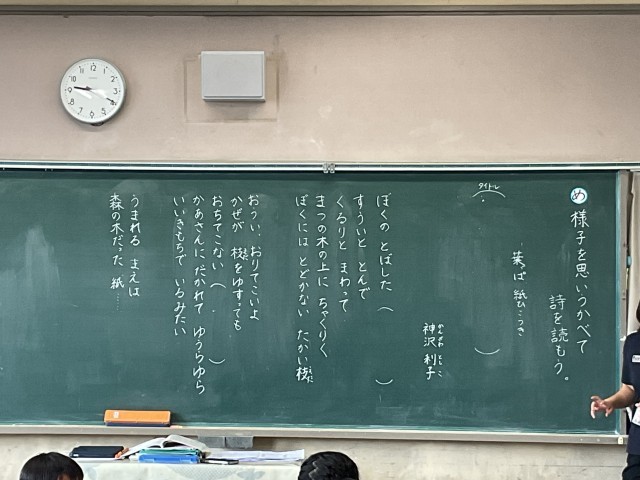 め 様子を思いうかべて
詩を読もう。
葉っぱ 紙ひこうき
タイトル
( )
神沢 利子
かんざわ としこ
ぼくの とばした ( )
すういと とんで
くるりと まわって
まつの木の上に ちゃくりく
ぼくには とどかない たかい枝
えだ
おうい、おりてこいよ
かぜが 枝をゆすっても
えだ
おちてこない ( )
かあさんに だかれて ゆうらゆら
いいきもちで いるみたい
うまれる まえは
森の木だった 紙……
12
1
2
3
4
5
6
7
8
9
10
11